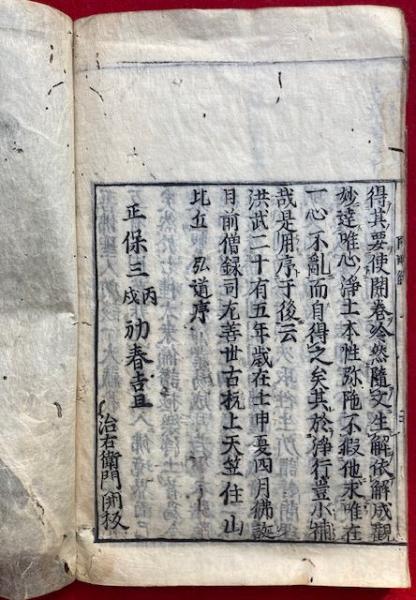 得其要使開卷冷然隨文生解依解成觀
妙達唯心淨土本性弥陁不假他求唯在
一心不亂而自得之矣其於淨行豈小補
哉是用序于後云
洪武二十有五年歲在壬申夏四月佛誕
日前僧録司左善世古杭上天竺住山
比丘 弘道序
正保三丙戌初春吉旦
治右衛門開板